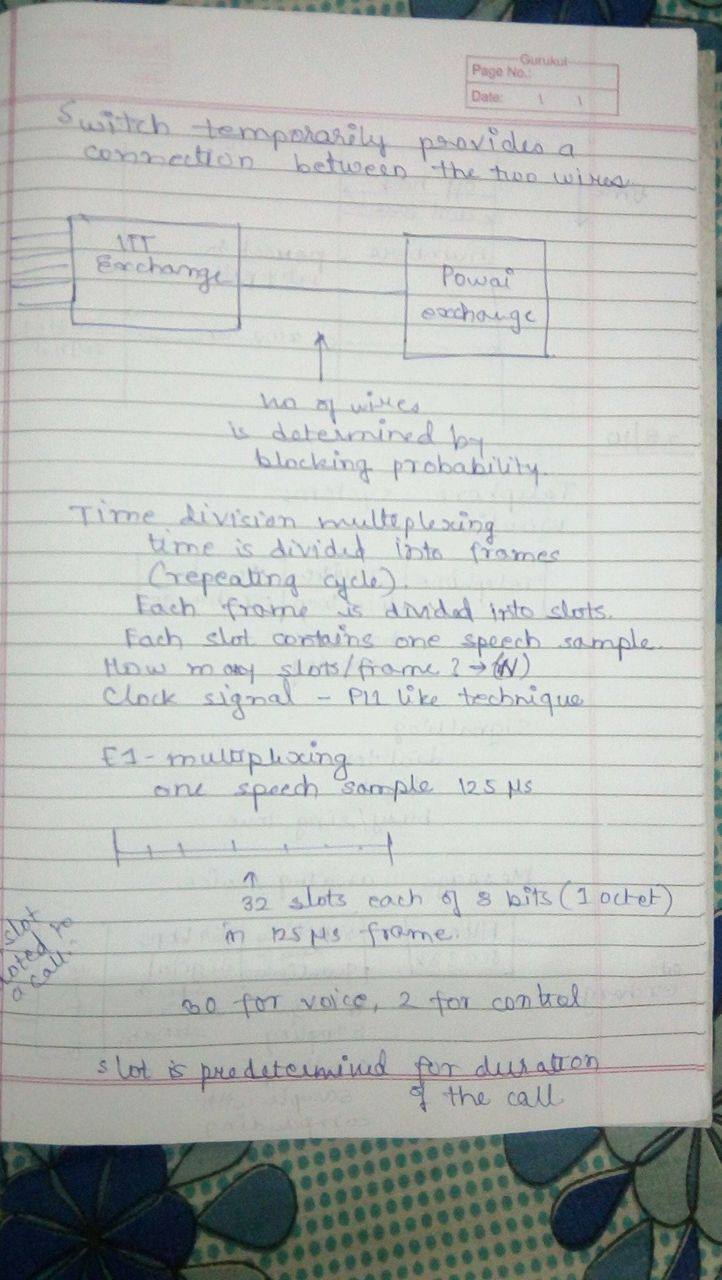 Gurukul
Page No.:
Date:
Switch temporarily provides a
connection between the two wires
IIT
Exchange
Powai
exchange
no of wires
is determined by
blocking probability.
Time division multiplexing
time is divided into frames
(repeating cycle).
Each frame is divided into slots.
Each slot contains one speech sample.
How many slots/frame? → (N)
Clock signal - Pll like technique
E1 - multiplexing
one speech sample 125 μs
32 slots each of 8 bits (1 octet)
in 125 μs frame.
slot
loted to
a call.
30 for voice, 2 for control
slot is predetermined for duration
of the call